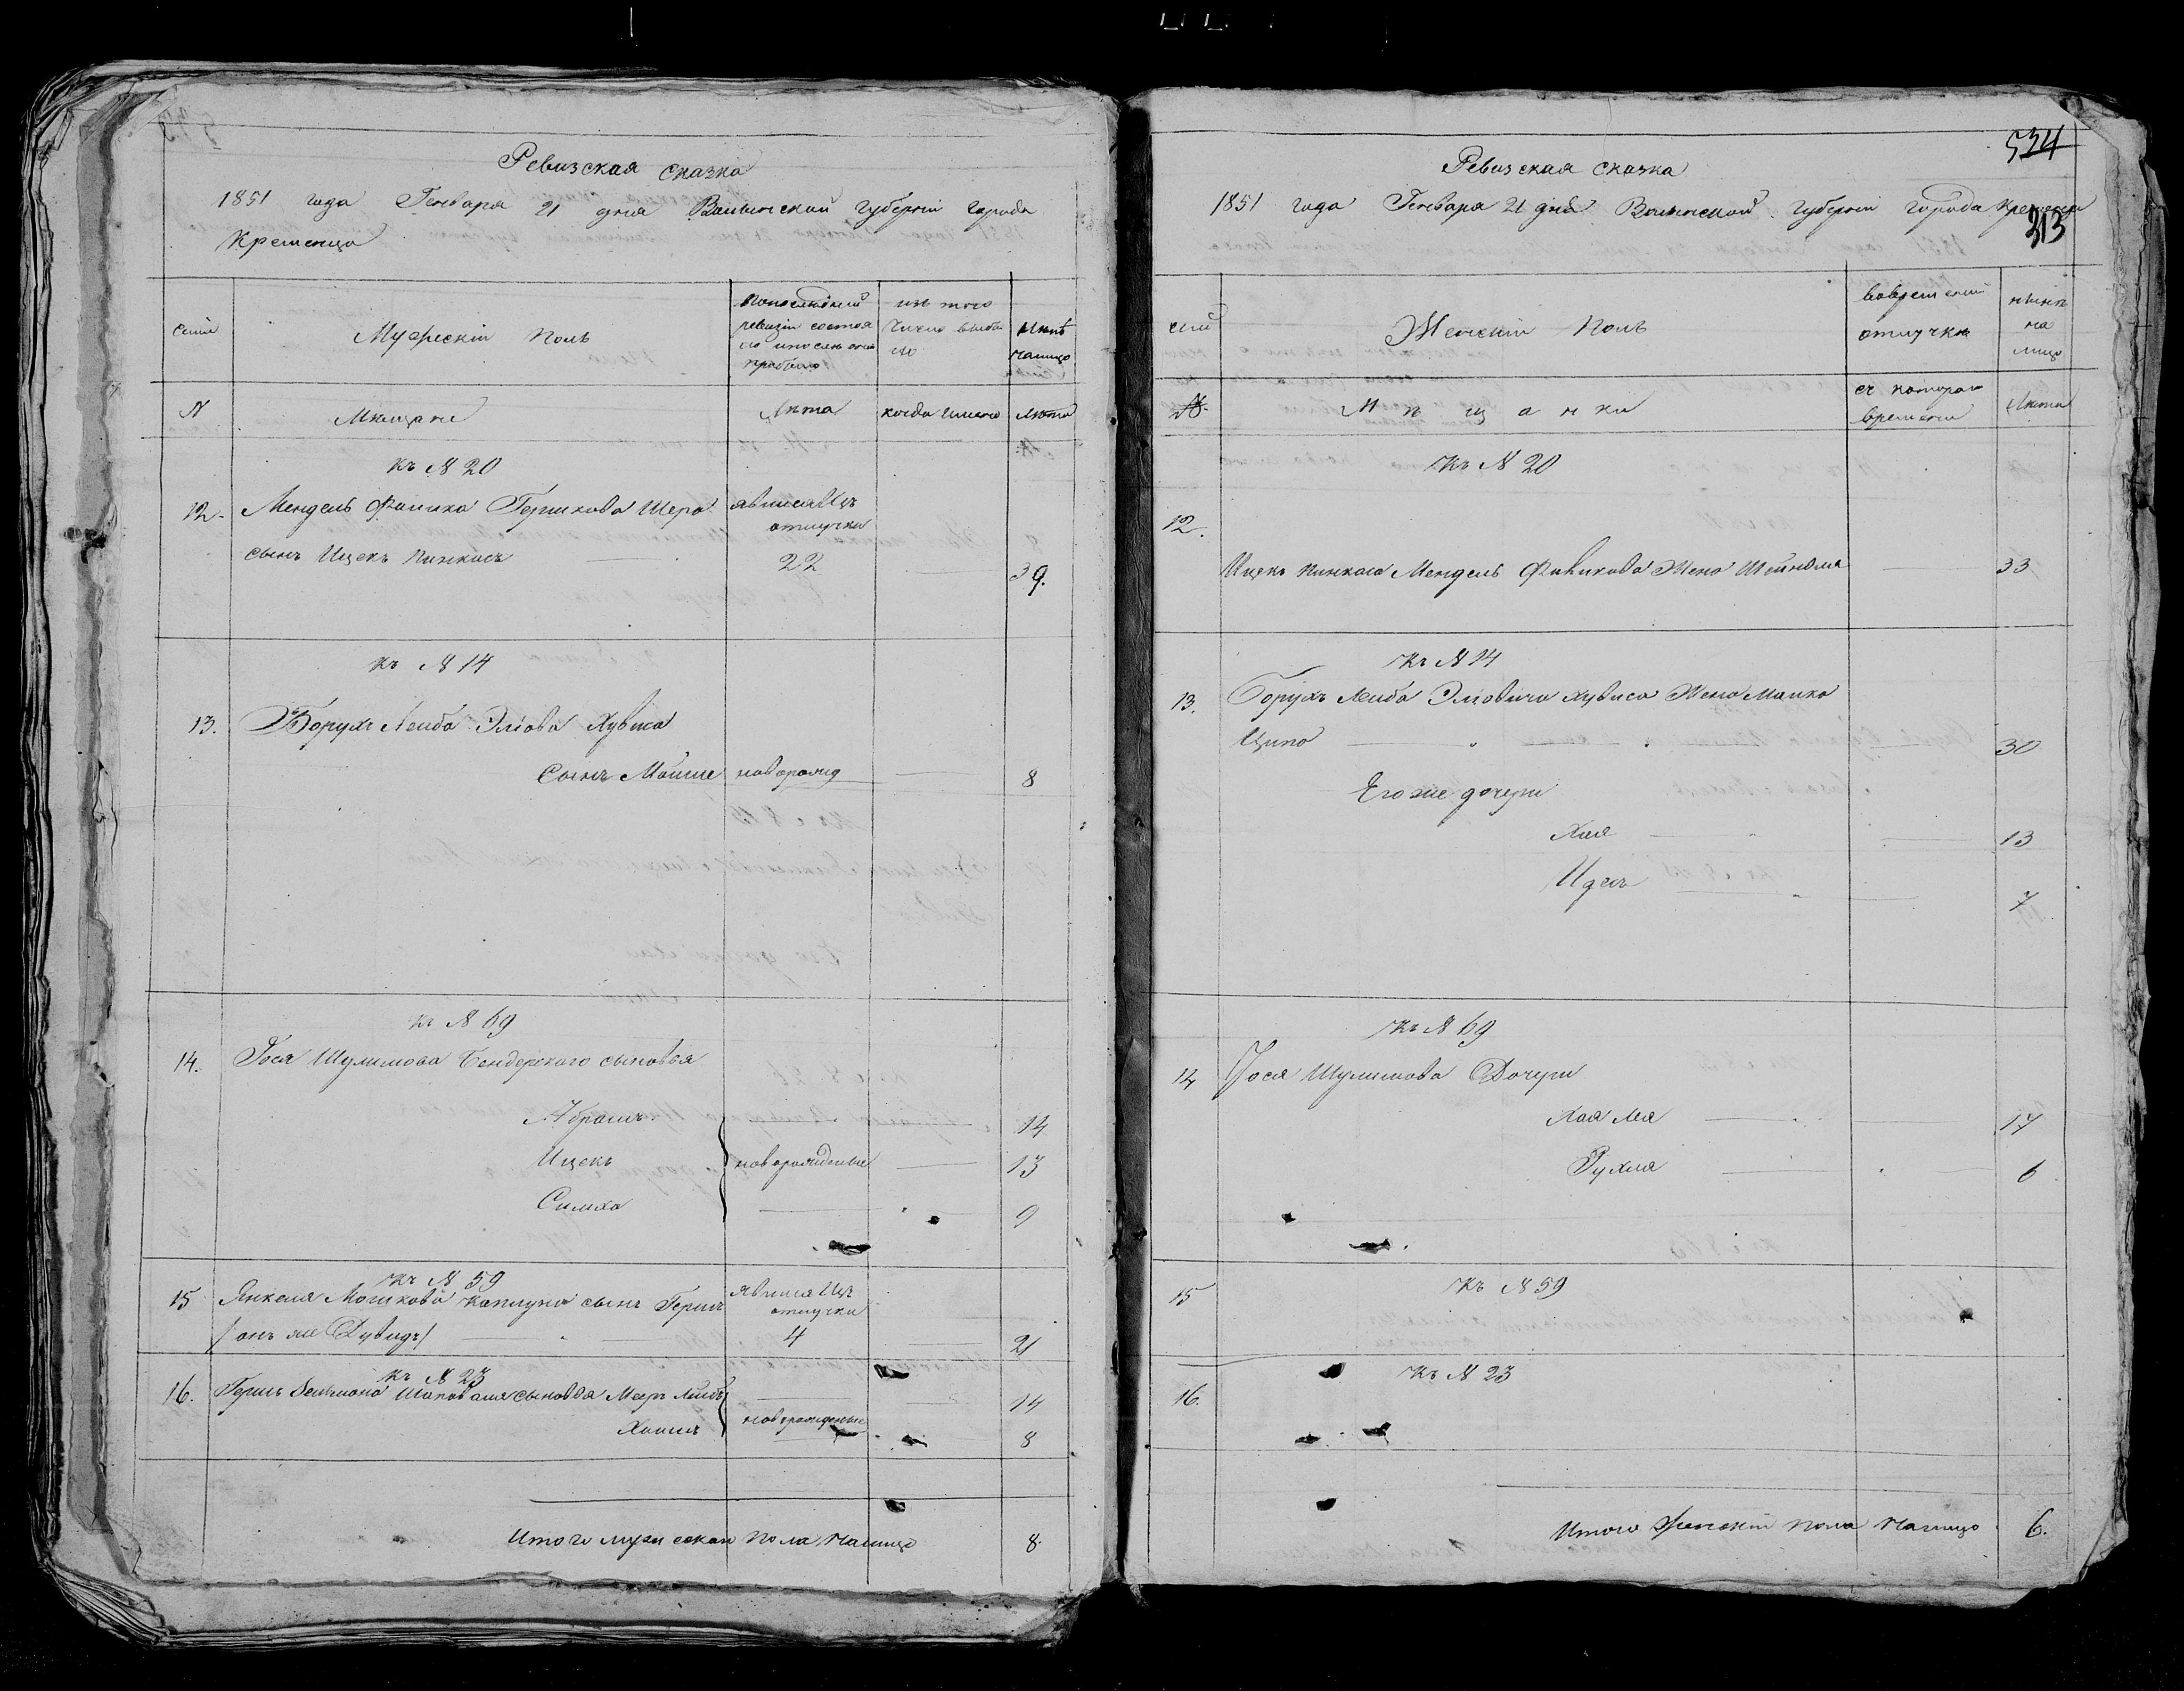 Ревизская сказка
1851 года Генваря 21 дня Волынской губерніи города
Кременца
семьи
Мужескій полъ
по последней
ревизіи состоя
ло и после оной
прибыло
изъ того
числа выбы
ло
ныне
налицо
N
Мещане
Лета
когда именно
лета
къ N 20
12. Мендель Файвиха Гершкова Шера явился изъ
отлучки
сынъ Ицекъ Пинкасъ 22 39.
къ N 14
13. Борухъ Лейба Эліова Хувиса
сынъ Мойше новорожд 8
къ N 69
14. Іося Шулимова Бендерского сыновья
Абрамъ 14
Ицекъ новорожденные 13
Симха 9
къ N 59
15 Янкеля Мошкова Каплуна сынъ Гершъ явился изъ
отлучки
/онъ же Дувидъ/ 4 21
къ N 23
16. Гершъ Зельмана Шаповаля сыновья Меер Лейбъ 14
Хаимъ новорожденные 8
Итого мужескаго пола налицо 8.
534
Ревизская сказка
1851 года Генваря 21 дня Волынской губерніи города Кременца
313
семьи
Женскій полъ
во временной
отлучке
ныне
на
лицо
N
Мещанки
съ котораго
времени
Лета
къ N 20
12.
Ицекъ Пинкаса Мендель Файвихова жена Шейндля 33
къ N 14
13. Борухъ Лейба Эліовича Хувиса жена Малка
Ципа 30
Его же дочери
Хая 13
Идесъ 7
къ N 69
14 Іося Шулимова Дочери
Хая Лея 17
Рухля 6
къ N 59
15
къ N 23
16.
Итого женскій пола налицо 6.